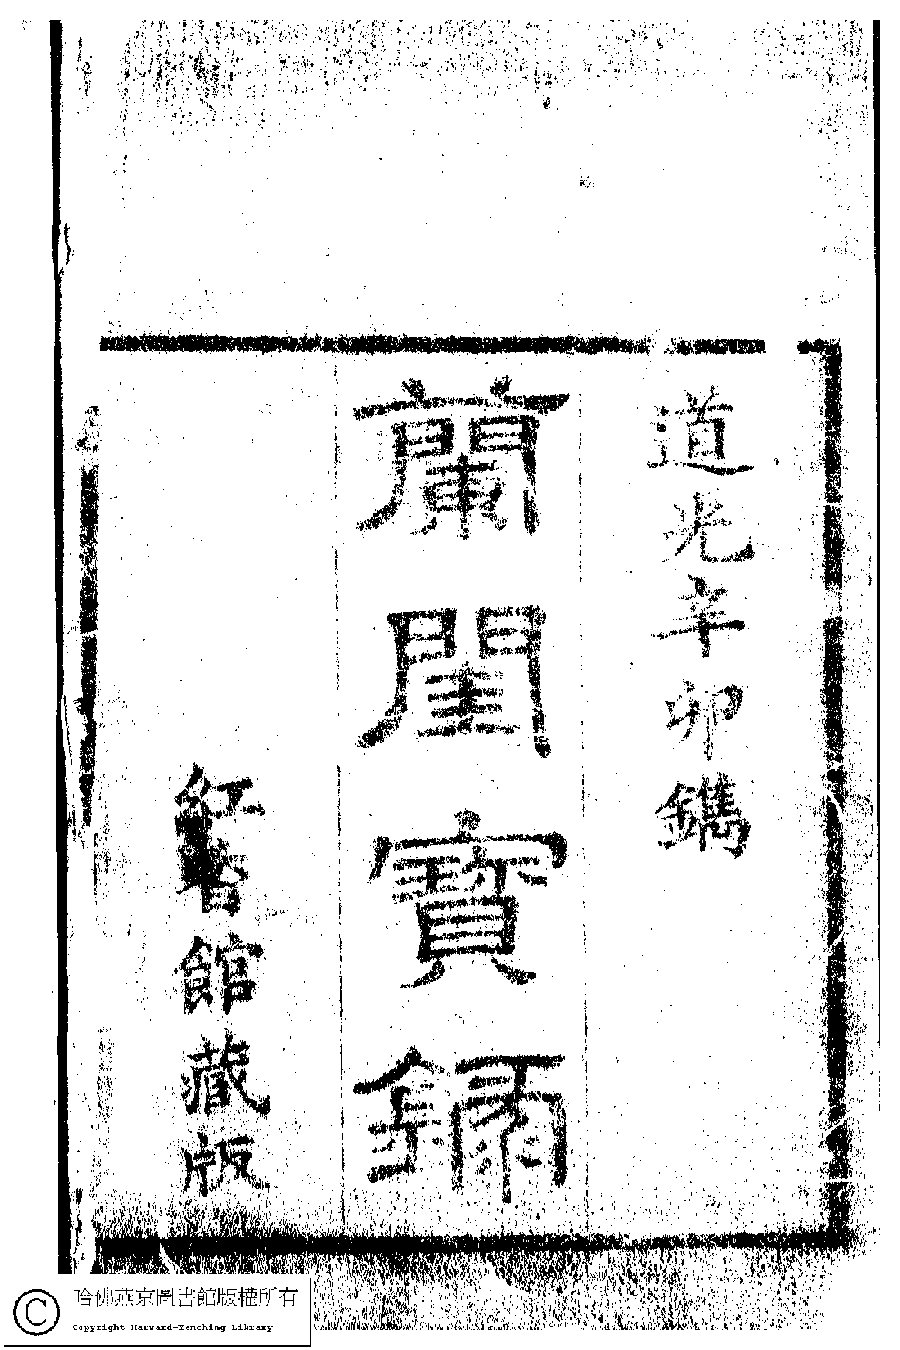 道光辛卯鐫
蘭閨寶錄
紅香館藏版
哈佛燕京圖書館版權所有
Copyright Harvard-Yenching Library